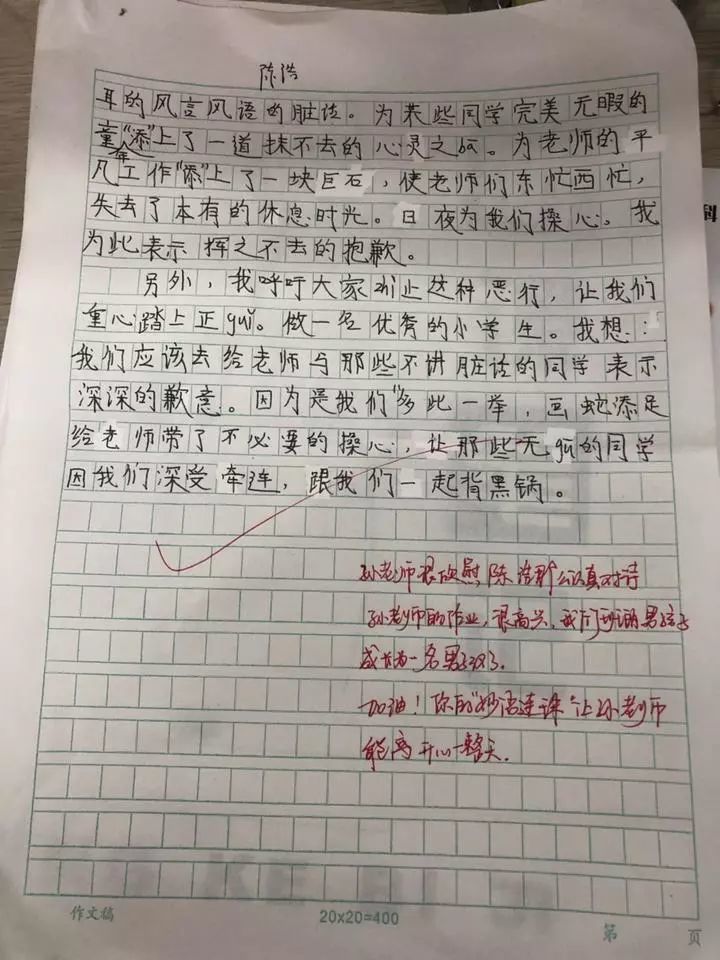 陈浩
耳的风言风语的脏话。为某些同学完美无暇的
童年“添”上了一道抹不去的心灵之ba。为老师的平
凡工作“添”上了一块巨石，使老师们东忙西忙，
失去了本有的休息时光。日夜为我们操心。我
为此表示挥之不去的抱歉。
另外，我呼吁大家制止这种恶行，让我们
重心踏上正gui。做一名优秀的小学生。我想：
我们应该去给老师与那些不讲脏话的同学表示
深深的歉意。因为是我们“多此一举，画蛇添足
给老师带了不必要的操心，让那些无gu的同学
因我们深受牵连，跟我们一起背黑锅。
孙老师很欣慰陈浩那么认真对待
孙老师的作业，很高兴，我们班的男孩子
成长为一名男子汉了.
加油！你的“妙语连珠”让孙老师
能高开心一整天.
作文稿
20x20=400
第 页